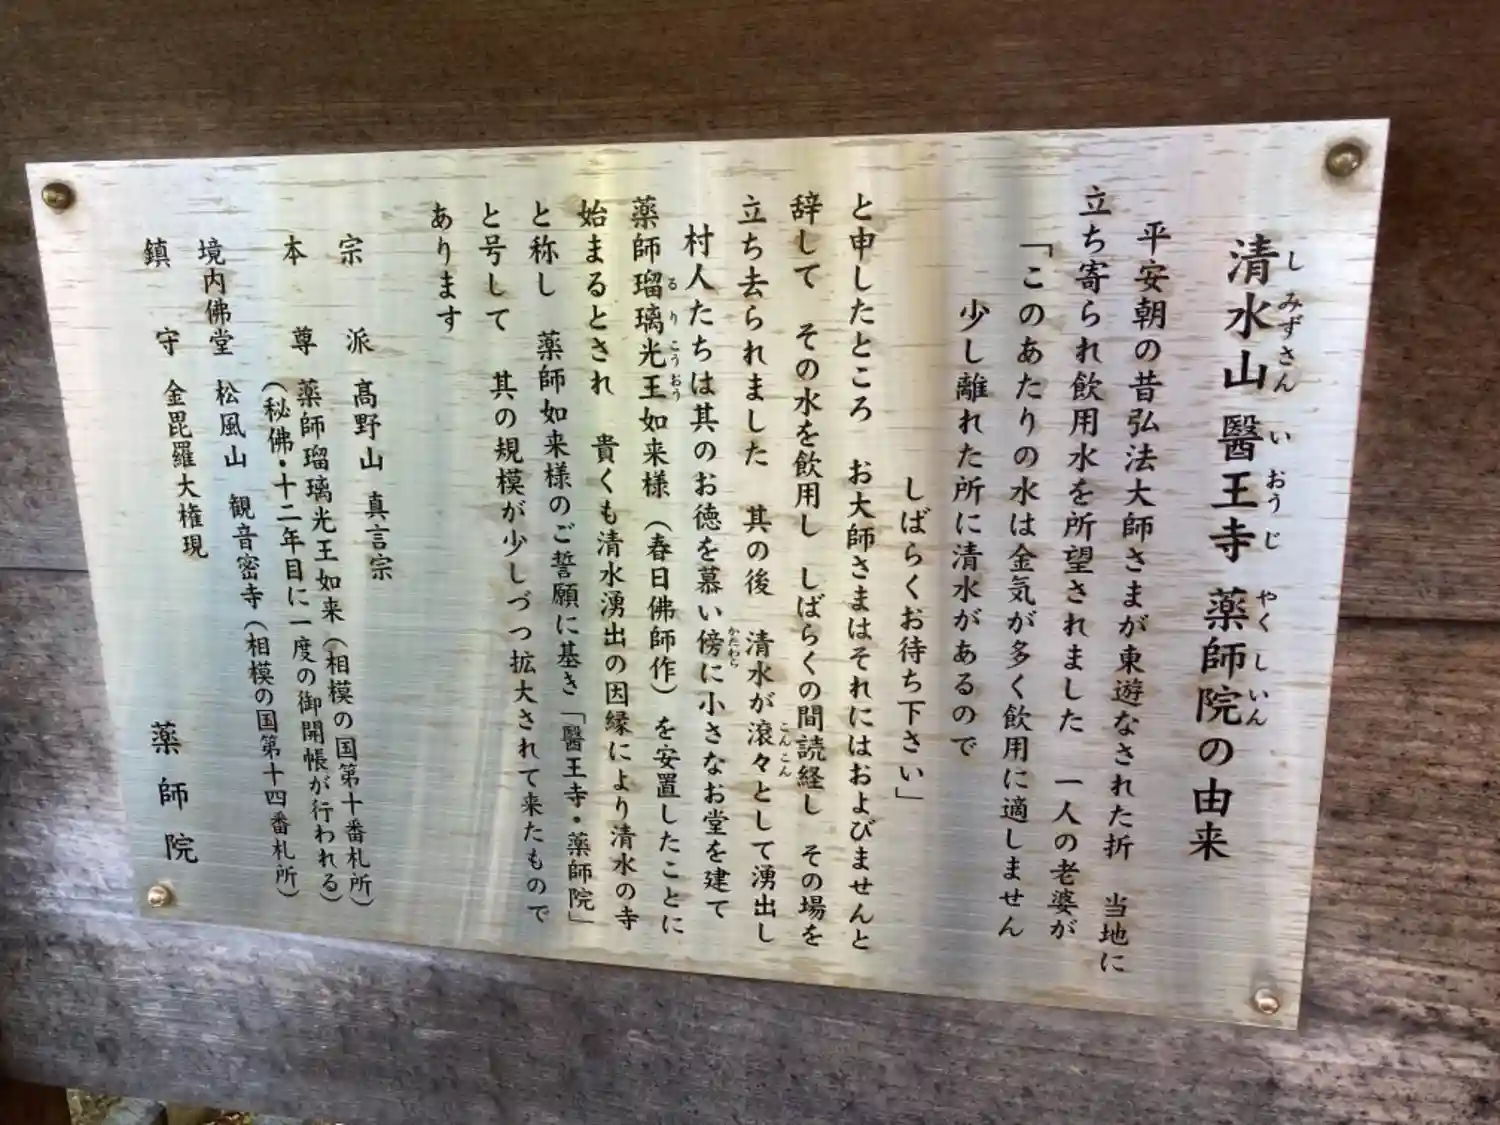 清水山 醫王寺 薬師院の由来
しみずさん いおうじ やくしいん
平安朝の昔弘法大師さまが東遊なされた折 当地に
立ち寄られ飲用水を所望されました 一人の老婆が
「このあたりの水は金気が多く飲用に適しません
少し離れた所に清水があるので
しばらくお待ち下さい」
と申したところ お大師さまはそれにはおよびませんと
辞して その水を飲用し しばらくの間読経し その場を
立ち去られました 其の後 清水が滾々として湧出し
こんこん
村人たちは其のお徳を慕い傍に小さなお堂を建て
かたわら
薬師瑠璃光王如来様(春日佛師作)を安置したことに
るりこうおう
始まるとされ 貴くも清水湧出の因縁により清水の寺
と称し 薬師如来様のご誓願に基き「醫王寺・薬師院」
と号して 其の規模が少しづつ拡大されて来たもので
あります
宗派 高野山 真言宗
本尊 薬師瑠璃光王如来(相模の国第十番札所)
(秘佛・十二年目に一度の御開帳が行われる)
境内佛堂 松風山 観音密寺(相模の国第十四番札所)
鎮守 金毘羅大権現
薬師院